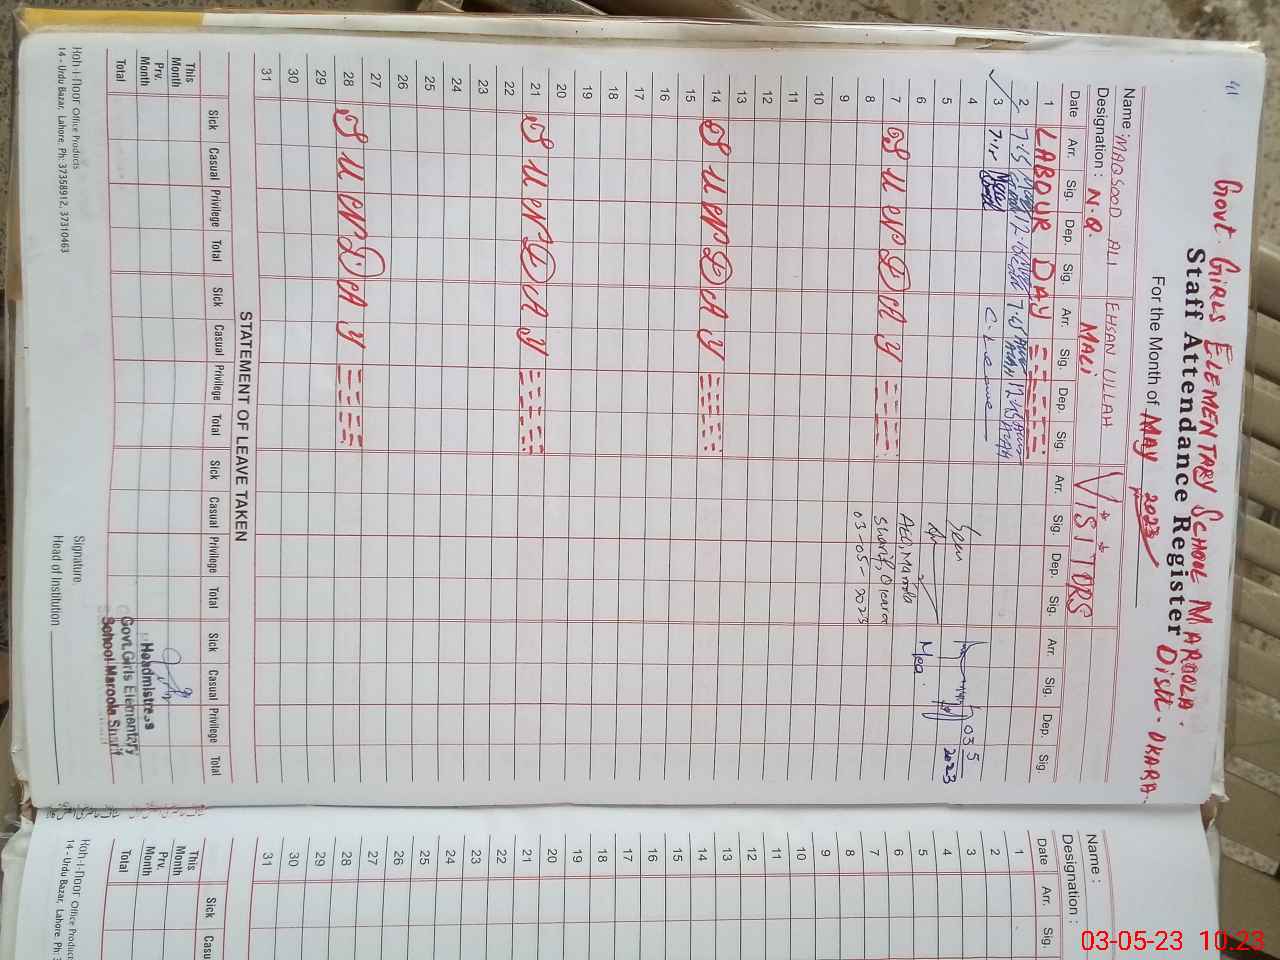 41
Govt. Girls Elementary School Maroola. Distt. Okara.
Staff Attendance Register
For the Month of May 2023
Name : MAQSOOD ALI EHSAN ULLAH VISITORS
Designation : N.Q. MALI
Date Arr. Sig. Dep. Sig. Arr. Sig. Dep. Sig. Arr. Sig. Dep. Sig. Arr. Sig. Dep. Sig.
1 LABOUR DAY
2 7.15 12.15 7.15 12.15
3 7.15 C-Leave
4 Seen 03 5 2023
5
6 AEO, Maroola Mea.
7 SUNDAY Sharif, Okara
8 03-05-2023
9
10
11
12
13
14 SUNDAY
15
16
17
18
19
20
21 SUNDAY
22
23
24
25
26
27
28 SUNDAY
29
30
31
STATEMENT OF LEAVE TAKEN
Sick Casual Privilege Total Sick Casual Privilege Total Sick Casual Privilege Total Sick Casual Privilege Total
This Month
Prv. Month
Total
Headmistress
Govt. Girls Elementary
School Maroola Sharif
Koh-i-noor Office Products
14 - Urdu Bazar, Lahore. Ph: 37358912, 37310463
Signature.
Head of Institution
Name :
Designation :
Date Arr. Sig.
1
2
3
4
5
6
7
8
9
10
11
12
13
14
15
16
17
18
19
20
21
22
23
24
25
26
27
28
29
30
31
Sick Casu
This Month
Prv. Month
Total
Koh-i-noor Office Produc
14 - Urdu Bazar, Lahore. Ph:
03-05-23 10:23